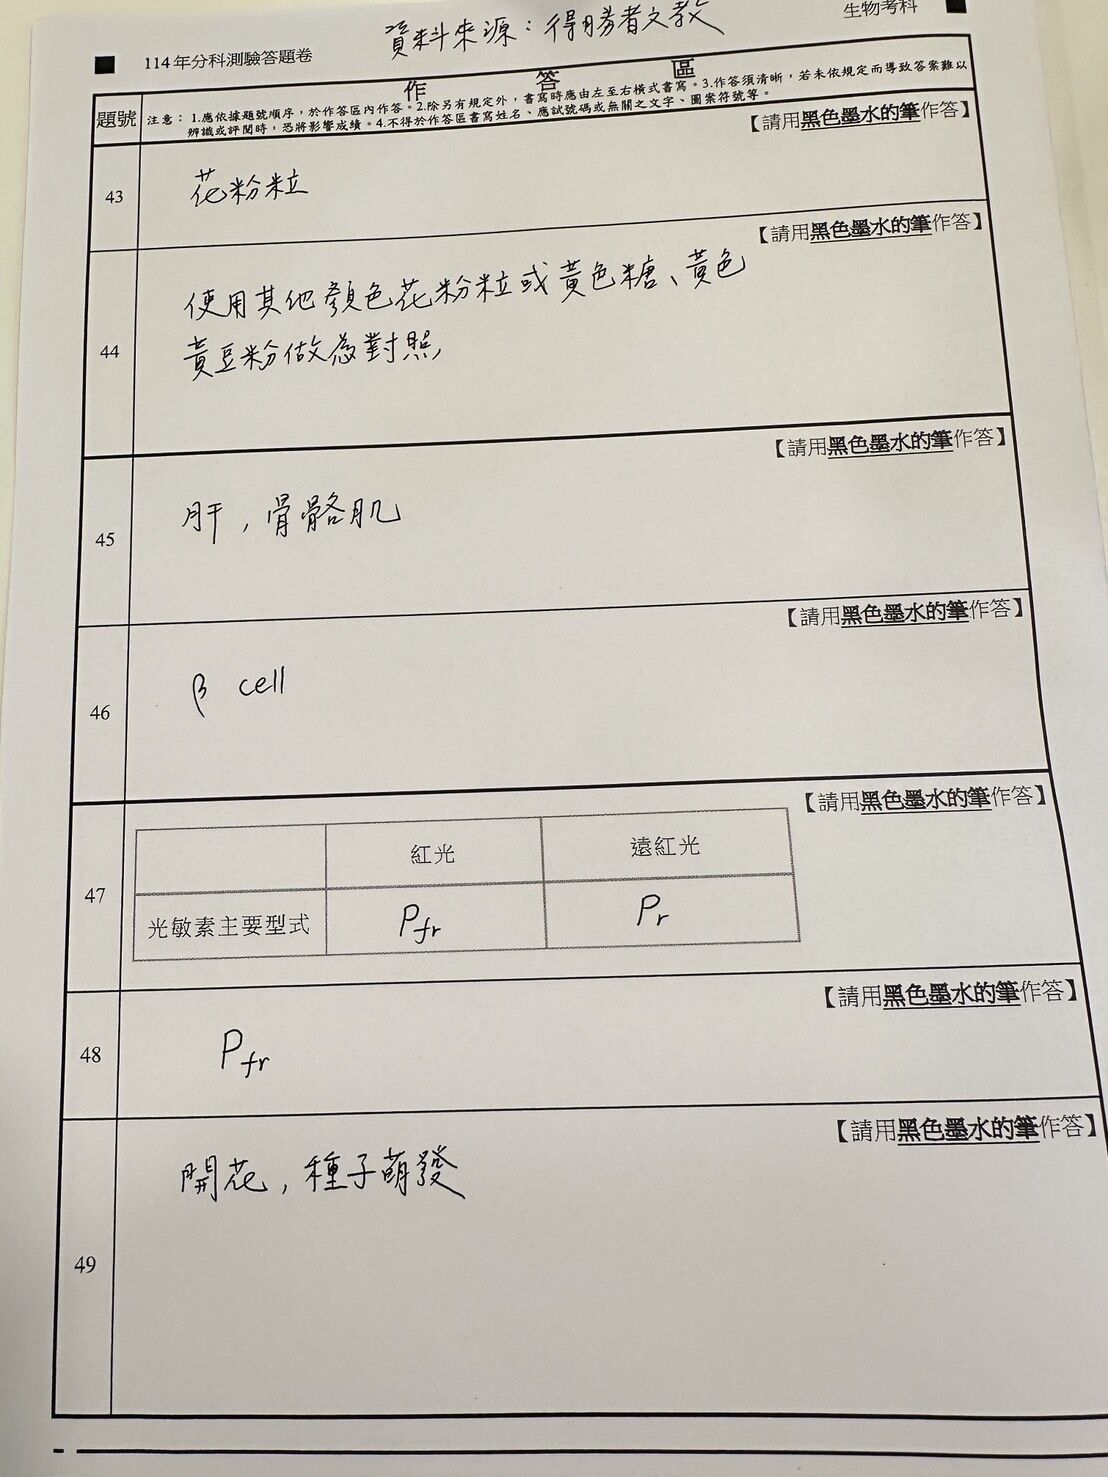 資料來源：得勝者文教
■ 114年分科測驗答題卷
生物考科 ■
作答區
題號
注意：1.應依據題號順序，於作答區內作答。2.除另有規定外，書寫時應由左至右橫式書寫。3.作答須清晰，若未依規定而導致答案難以
辨識或評閱時，恐將影響成績。4.不得於作答區書寫姓名、應試號碼或無關之文字、圖案符號等。
【請用黑色墨水的筆作答】
43
花粉粒
【請用黑色墨水的筆作答】
44
使用其他顏色花粉粒或黃色糖、黃色
黃豆粉做為對照
【請用黑色墨水的筆作答】
45
肝，骨骼肌
【請用黑色墨水的筆作答】
46
β cell
【請用黑色墨水的筆作答】
47
紅光 遠紅光
光敏素主要型式 Pfr Pr
【請用黑色墨水的筆作答】
48
Pfr
【請用黑色墨水的筆作答】
49
開花，種子萌發